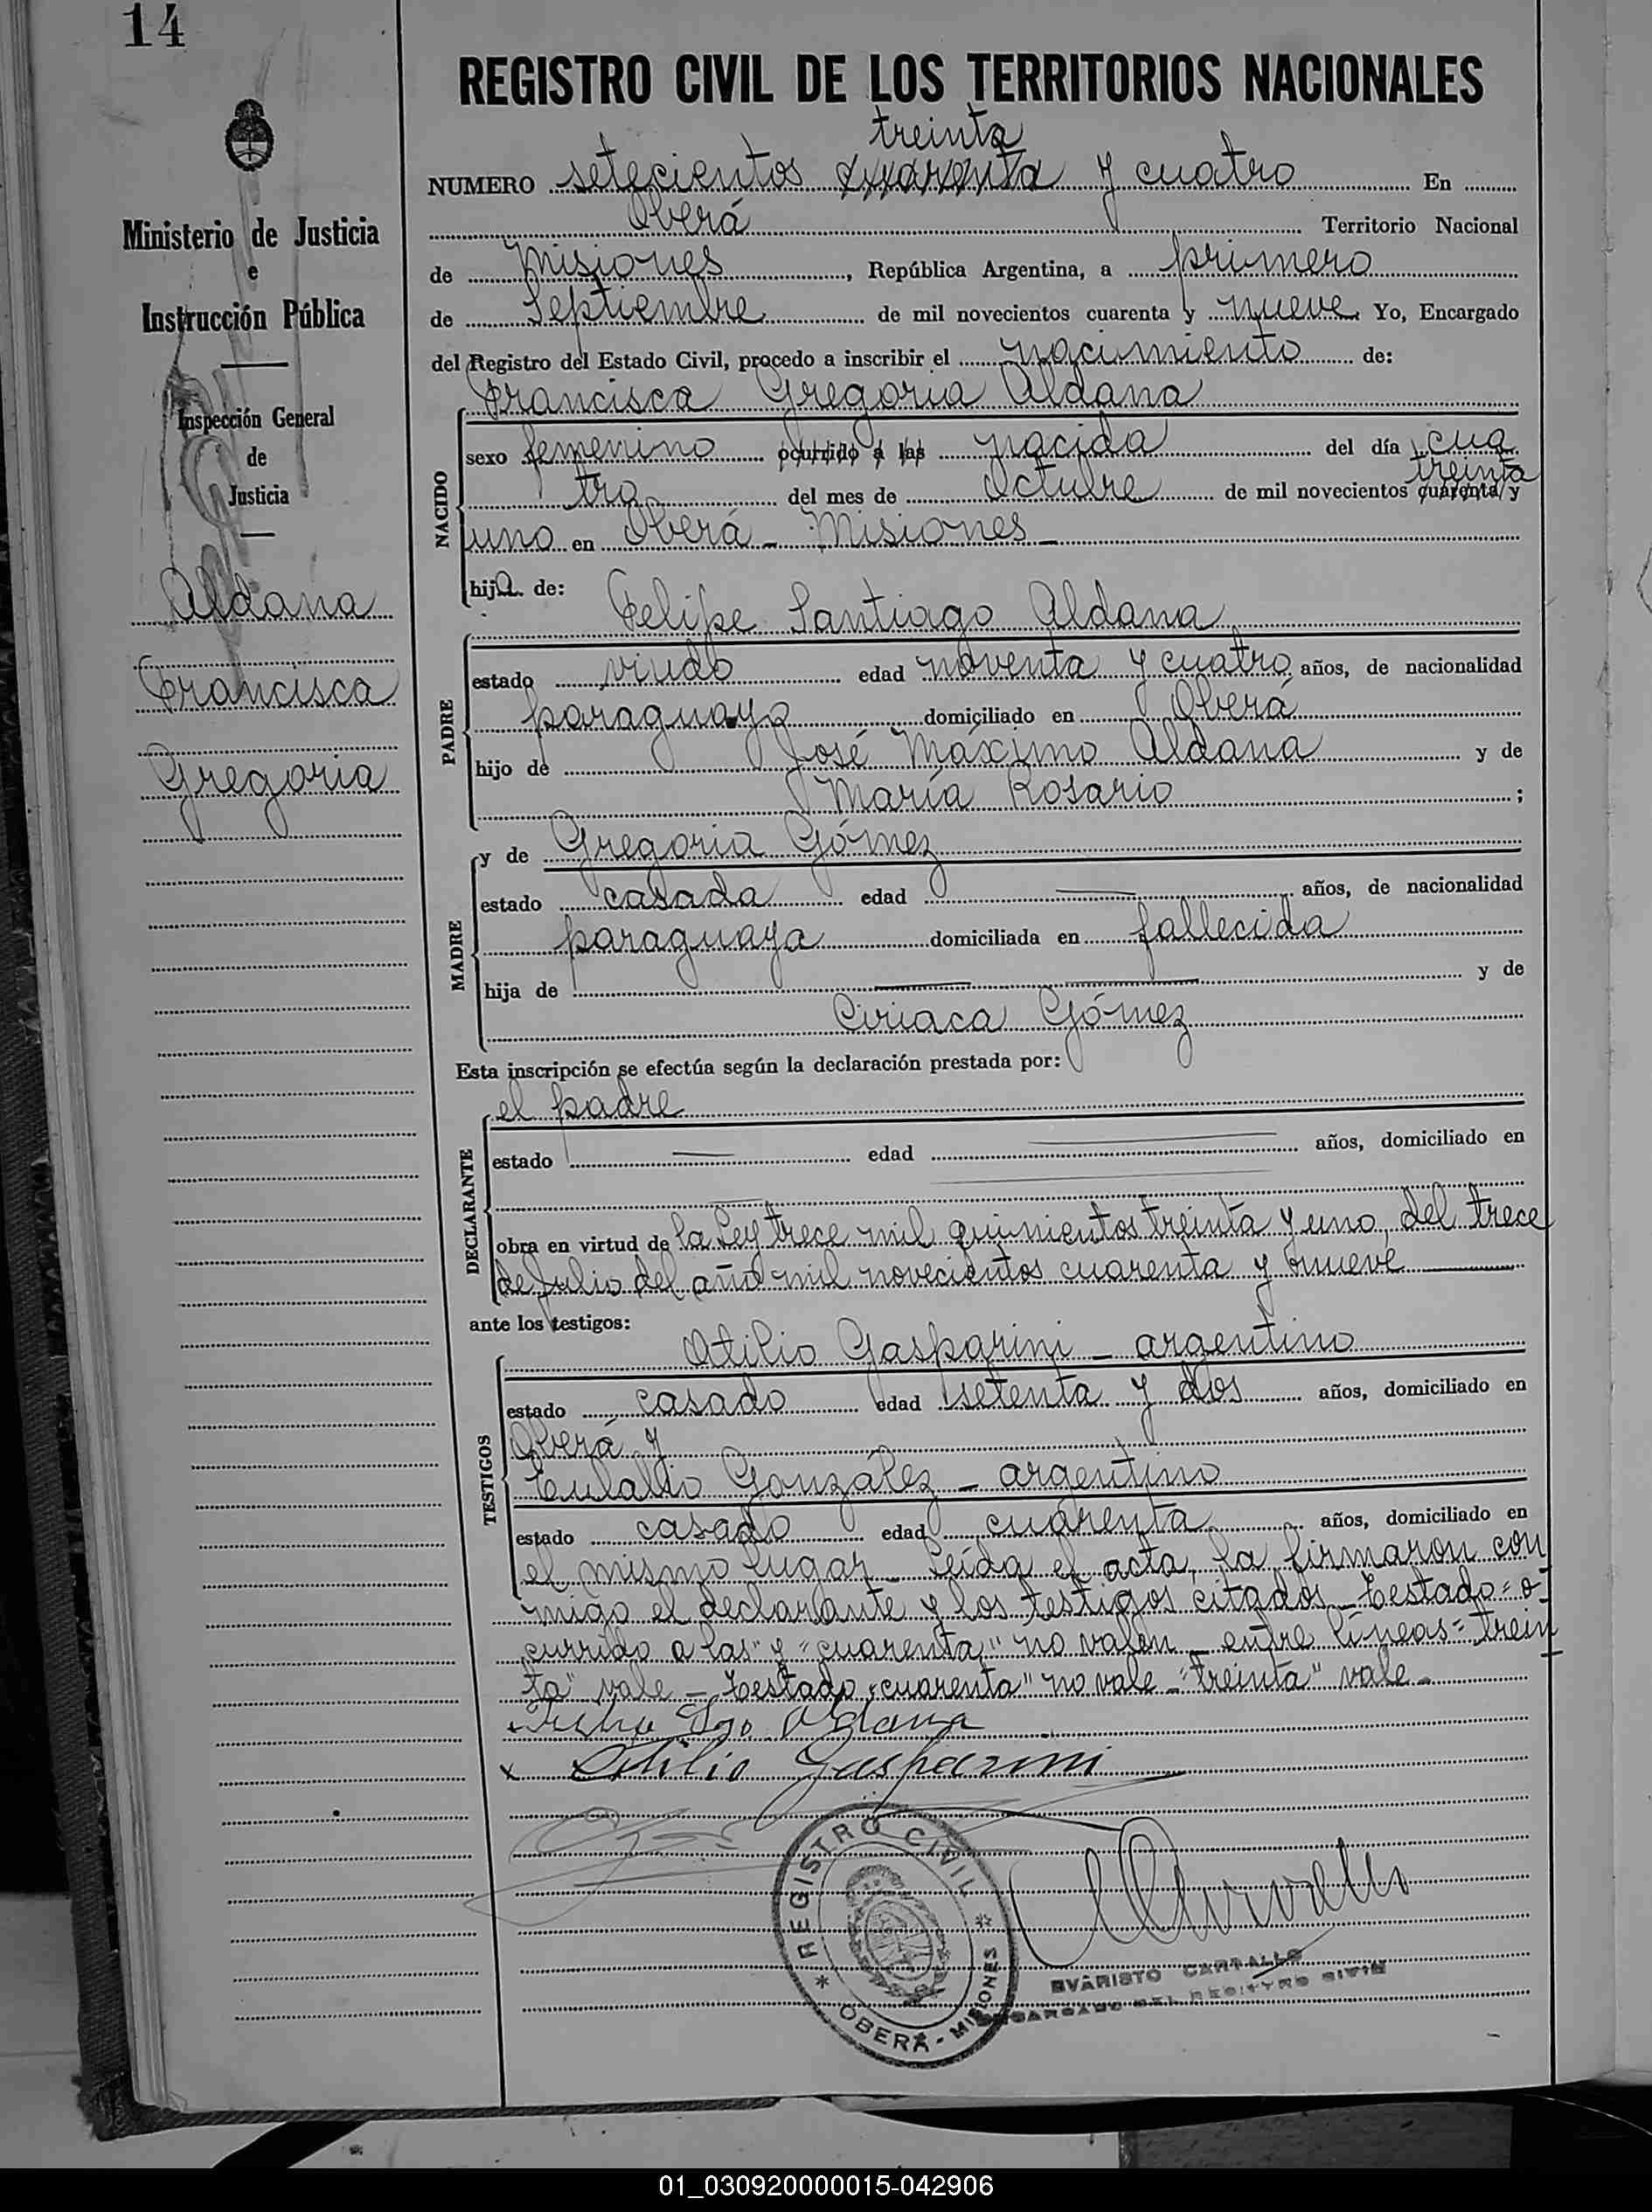 14
REGISTRO CIVIL DE LOS TERRITORIOS NACIONALES
treinta
NUMERO setecientos cuarenta y cuatro En
Oberá Territorio Nacional
de Misiones, República Argentina, a primero
de Septiembre de mil novecientos cuarenta y nueve Yo, Encargado
del Registro del Estado Civil, procedo a inscribir el nacimiento de:
Ministerio de Justicia
e
Instrucción Pública
Inspección General
de
Justicia
Aldana
Francisca
Gregoria
NACIDO
Francisca Gregoria Aldana
sexo femenino ocurrido a las nacida del día cua
treinta
tro del mes de Octubre de mil novecientos cuarenta y
uno en Oberá - Misiones -
hija de:
PADRE
Felipe Santiago Aldana
estado viudo edad noventa y cuatro años, de nacionalidad
paraguaya domiciliado en Oberá
hijo de José Máximo Aldana y de
María Rosario ;
MADRE
y de Gregoria Gómez
estado casada edad — años, de nacionalidad
paraguaya domiciliada en fallecida
hija de — — y de
Ciriaca Gómez
Esta inscripción se efectúa según la declaración prestada por:
DECLARANTE
el padre
estado — edad — años, domiciliado en
obra en virtud de la Ley trece mil quinientos treinta y uno, del trece
de Julio del año mil novecientos cuarenta y nueve —
ante los testigos:
TESTIGOS
Atilio Gasparini - argentino
estado casado edad setenta y dos años, domiciliado en
Oberá y
Eulalio González - argentino
estado casado edad cuarenta años, domiciliado en
el mismo lugar - Leída el acta, la firmaron con
migo el declarante y los testigos citados - testado = o-
currido a las" y "cuarenta" no valen - entre líneas = trein
ta" vale - testado "cuarenta" no vale - "treinta" vale -
Felipe Sgo. Aldana
x Atilio Gasparini
* REGISTRO CIVIL *
OBERÁ - MISIONES
EVARISTO CARVALLO
ENCARGADO DEL REGISTRO CIVIL
01_030920000015-042906